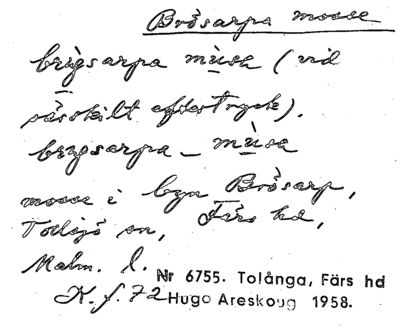 Brösarpa mosse
brẏgsarpa mùsa (vid
särskilt eftertryck).
brygsarpa - mùsa
mosse i byn Brösarp,
Tolånga sn, Färs hd,
Malm. l.
Nr 6755. Tolånga, Färs hd
K. f. 72 Hugo Areskoug 1958.